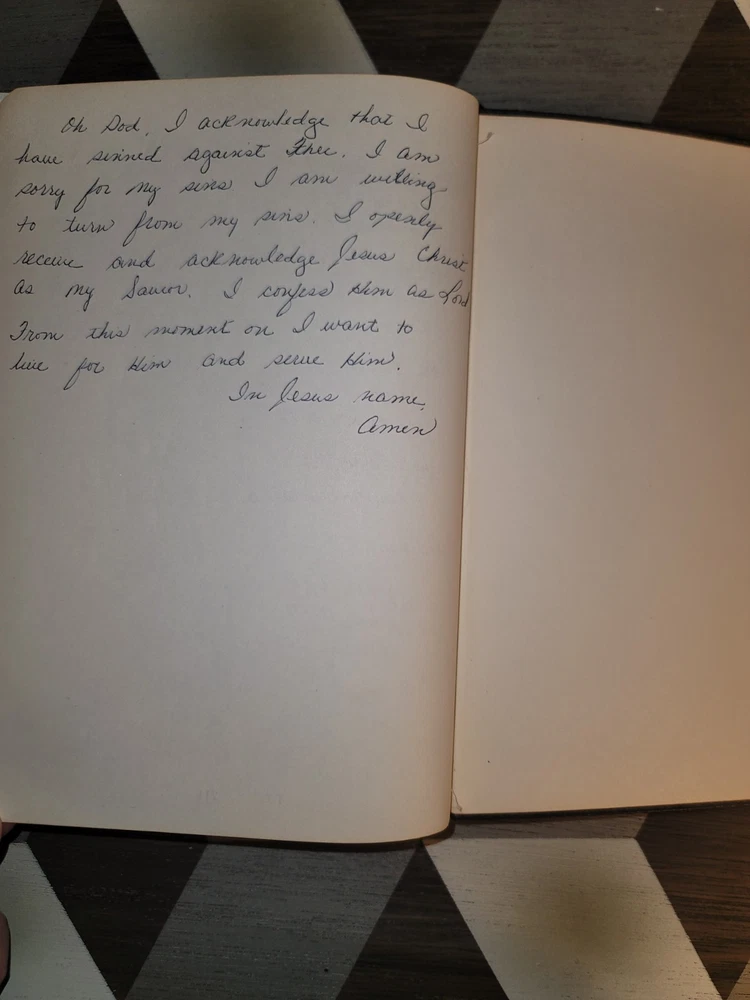 Oh God, I acknowledge that I
have sinned against Thee. I am
sorry for my sins I am willing
to turn from my sins. I openly
receive and acknowledge Jesus Christ
as my Savior. I confess Him as Lord
From this moment on I want to
live for Him and serve Him.
In Jesus name,
Amen